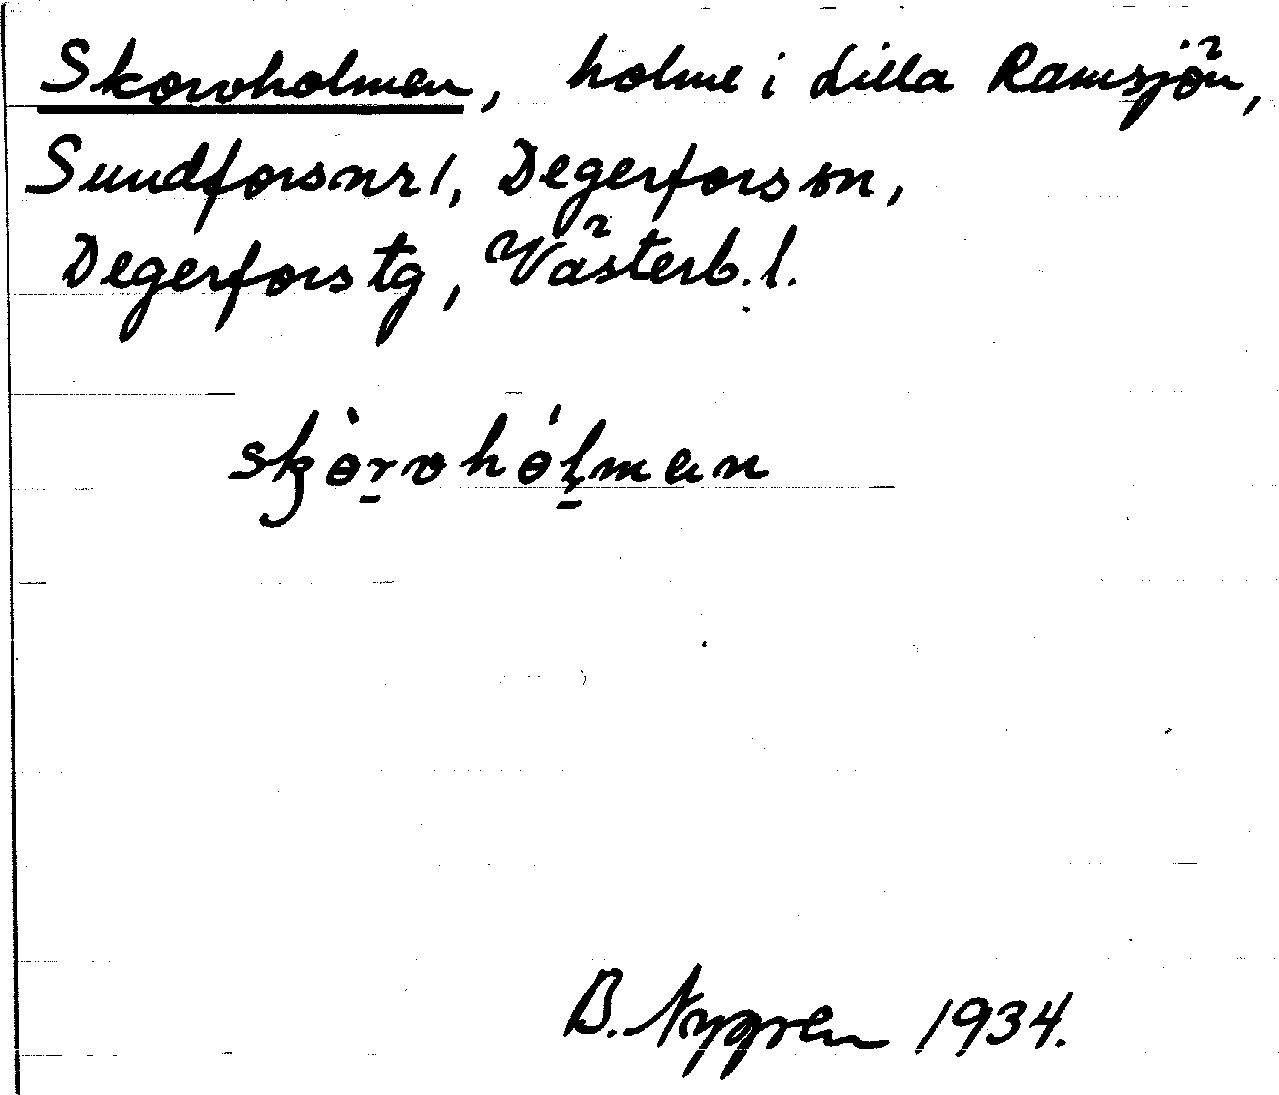 Skorvholmen, holme i Lilla Ramsjön,
Sundfors nr 1, Degerfors sn,
Degerfors tg, Västerb. l.
skòrvhólman
B. Nygren 1934.